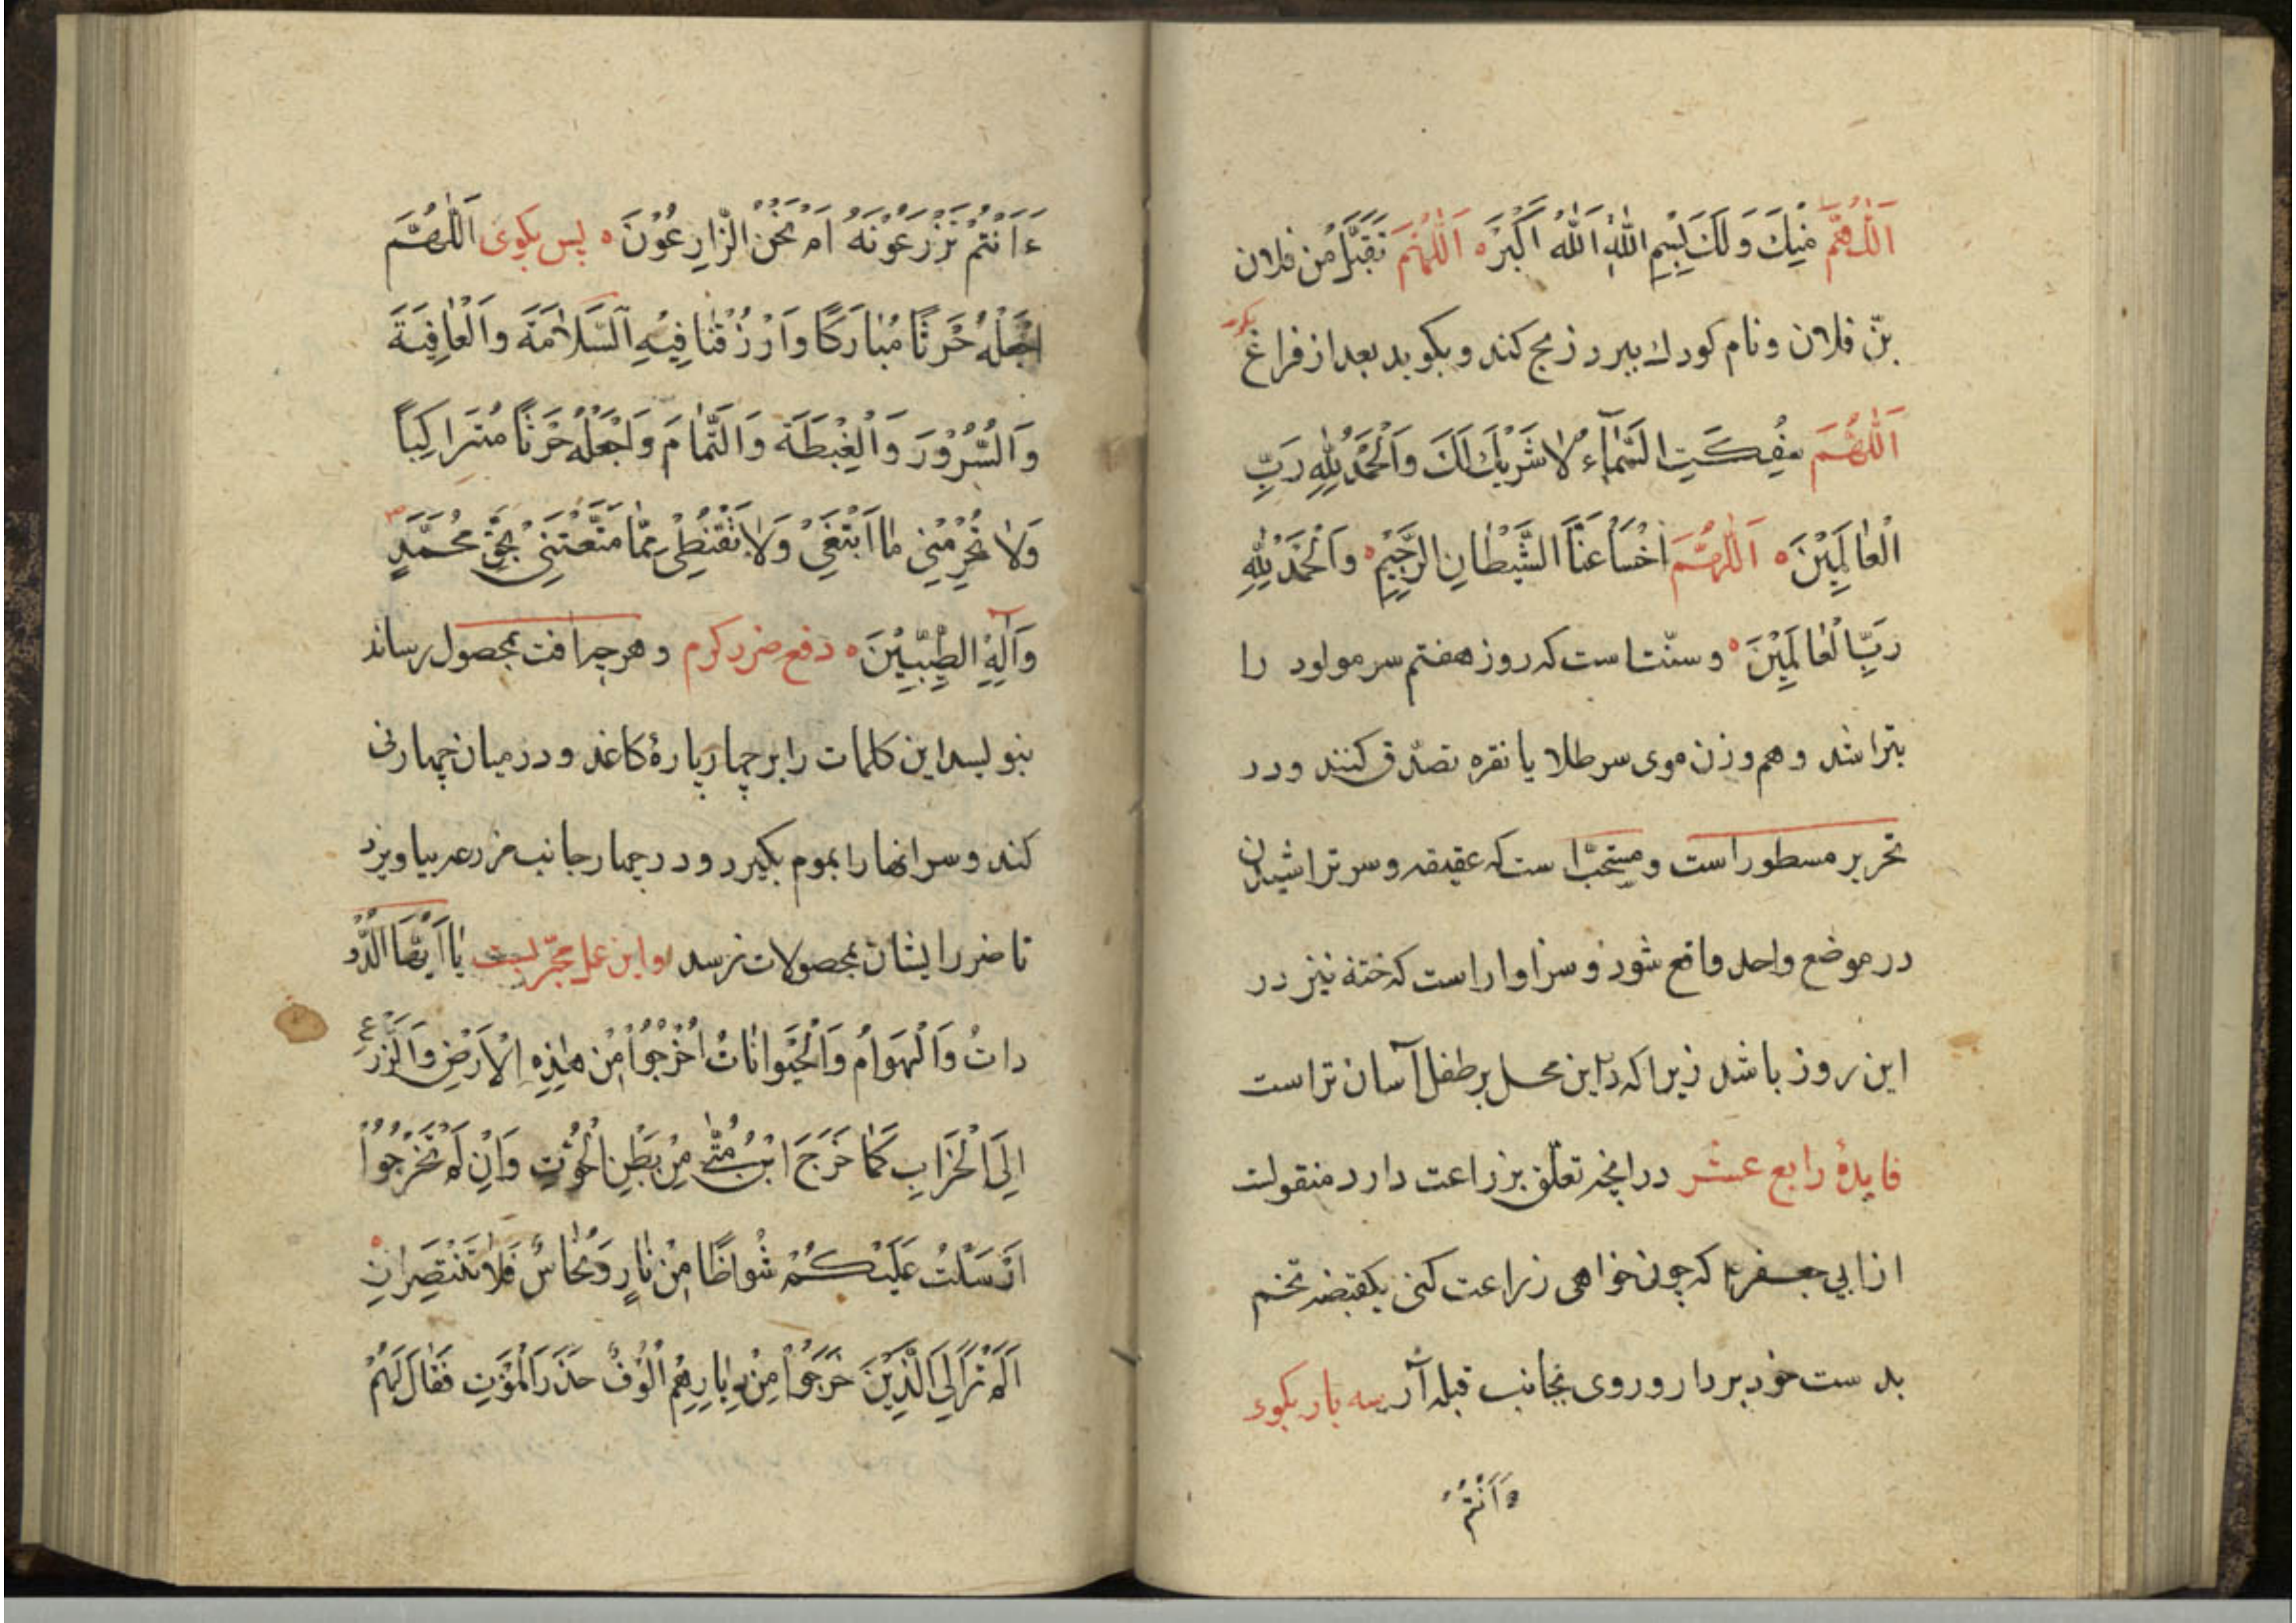 اَللّٰهُمَّ مِنْكَ وَلَكَ بِسْمِ اللّٰهِ اَللّٰهُ اَكْبَرُ ه اَللّٰهُمَّ تَقَبَّلْ مِنْ فلان
بنِ فلان ونام کودك ببرد ذبح کند وبکوید بعد از فراغ
اَللّٰهُمَّ سُفِكَتِ الدِّمَآءُ لٰا شَرِيْكَ لَكَ وَالْحَمْدُ لِلّٰهِ رَبِّ
الْعٰالَمِيْنَ ه اَللّٰهُمَّ اخْسَأْ عَنَّا الشَّيْطٰانِ الرَّجِيْمِ ه وَالْحَمْدُ لِلّٰهِ
رَبِّ الْعٰالَمِيْنَ ه و سنّت است که روز هفتم سر مولود را
بتراشد و هم وزن موی سر طلا یا نقره تصدّق کنند و در
تحریر مسطور است و مستحبّ است که عقیقه و سر تراشیدن
در موضع واحد واقع شود و سزاوار است که ختنه نیز در
این روز باشد زیرا که در این محل بر طفل آسان تر است
فایدهٔ رابع عشر در انچه تعلّق بزراعت دارد منقولست
از ابی جعفر که چون خواهی زراعت کنی یکقبضه تخم
بدست خود بردار و روی بجانب قبله آر سه بار بکوی
ءَاَنْتُمْ
ءَاَنْتُمْ تَزْرَعُوْنَهُ اَمْ نَحْنُ الزّٰارِعُوْنَ ه پس بکوی اَللّٰهُمَّ
اجْعَلْهُ حَرْثًا مُبٰارَكًا وَارْزُقْنٰا فِيْهِ السَّلٰامَةَ وَالْعٰافِيَةَ
وَالسُّرُوْرَ وَالْغِبْطَةَ وَالتَّمٰامَ وَاجْعَلْهُ حَرْثًا مُتَرٰاكِبًا
وَلٰا تَحْرِمْنِيْ مٰا اَبْتَغِيْ وَلٰا تَقْنِطْنِيْ مِمّٰا مَتَّعْتَنِيْ بِحَقِّ مُحَمَّدٍ
وَآلِهِ الطَّيِّبِيْنَ ه دفع ضرر کرم و هر چه آفت بمحصول رساند
بنویسد این کلمات را بر چهار پارهٔ کاغذ و در میان چهار نی
کند و سر انها را بموم بکیرد و در چهار جانب مزرعه بیاویزد
تا ضرر ایشان بمحصولات نرسد و این عمل مجرّبست يٰا اَيُّهَا الدُّو
دٰاتُ وَالْهَوٰامُ وَالْحَيَوٰانٰاتُ اُخْرُجُوْا مِنْ هٰذِهِ الْاَرْضِ وَالزَّرْعِ
اِلَى الْخَرٰابِ كَمٰا خَرَجَ ابْنُ مَتّٰى مِنْ بَطْنِ الْحُوْتِ وَاِنْ لَمْ تَخْرُجُوْا
اَرْسَلْتُ عَلَيْكُمْ شُوٰاظًا مِنْ نٰارٍ وَنُحٰاسٌ فَلٰا تَنْتَصِرٰانِ ه
اَلَمْ تَرَ اِلَى الَّذِيْنَ خَرَجُوْا مِنْ دِيٰارِهِمْ اُلُوْفٌ حَذَرَ الْمَوْتِ فَقٰالَ لَهُمْ